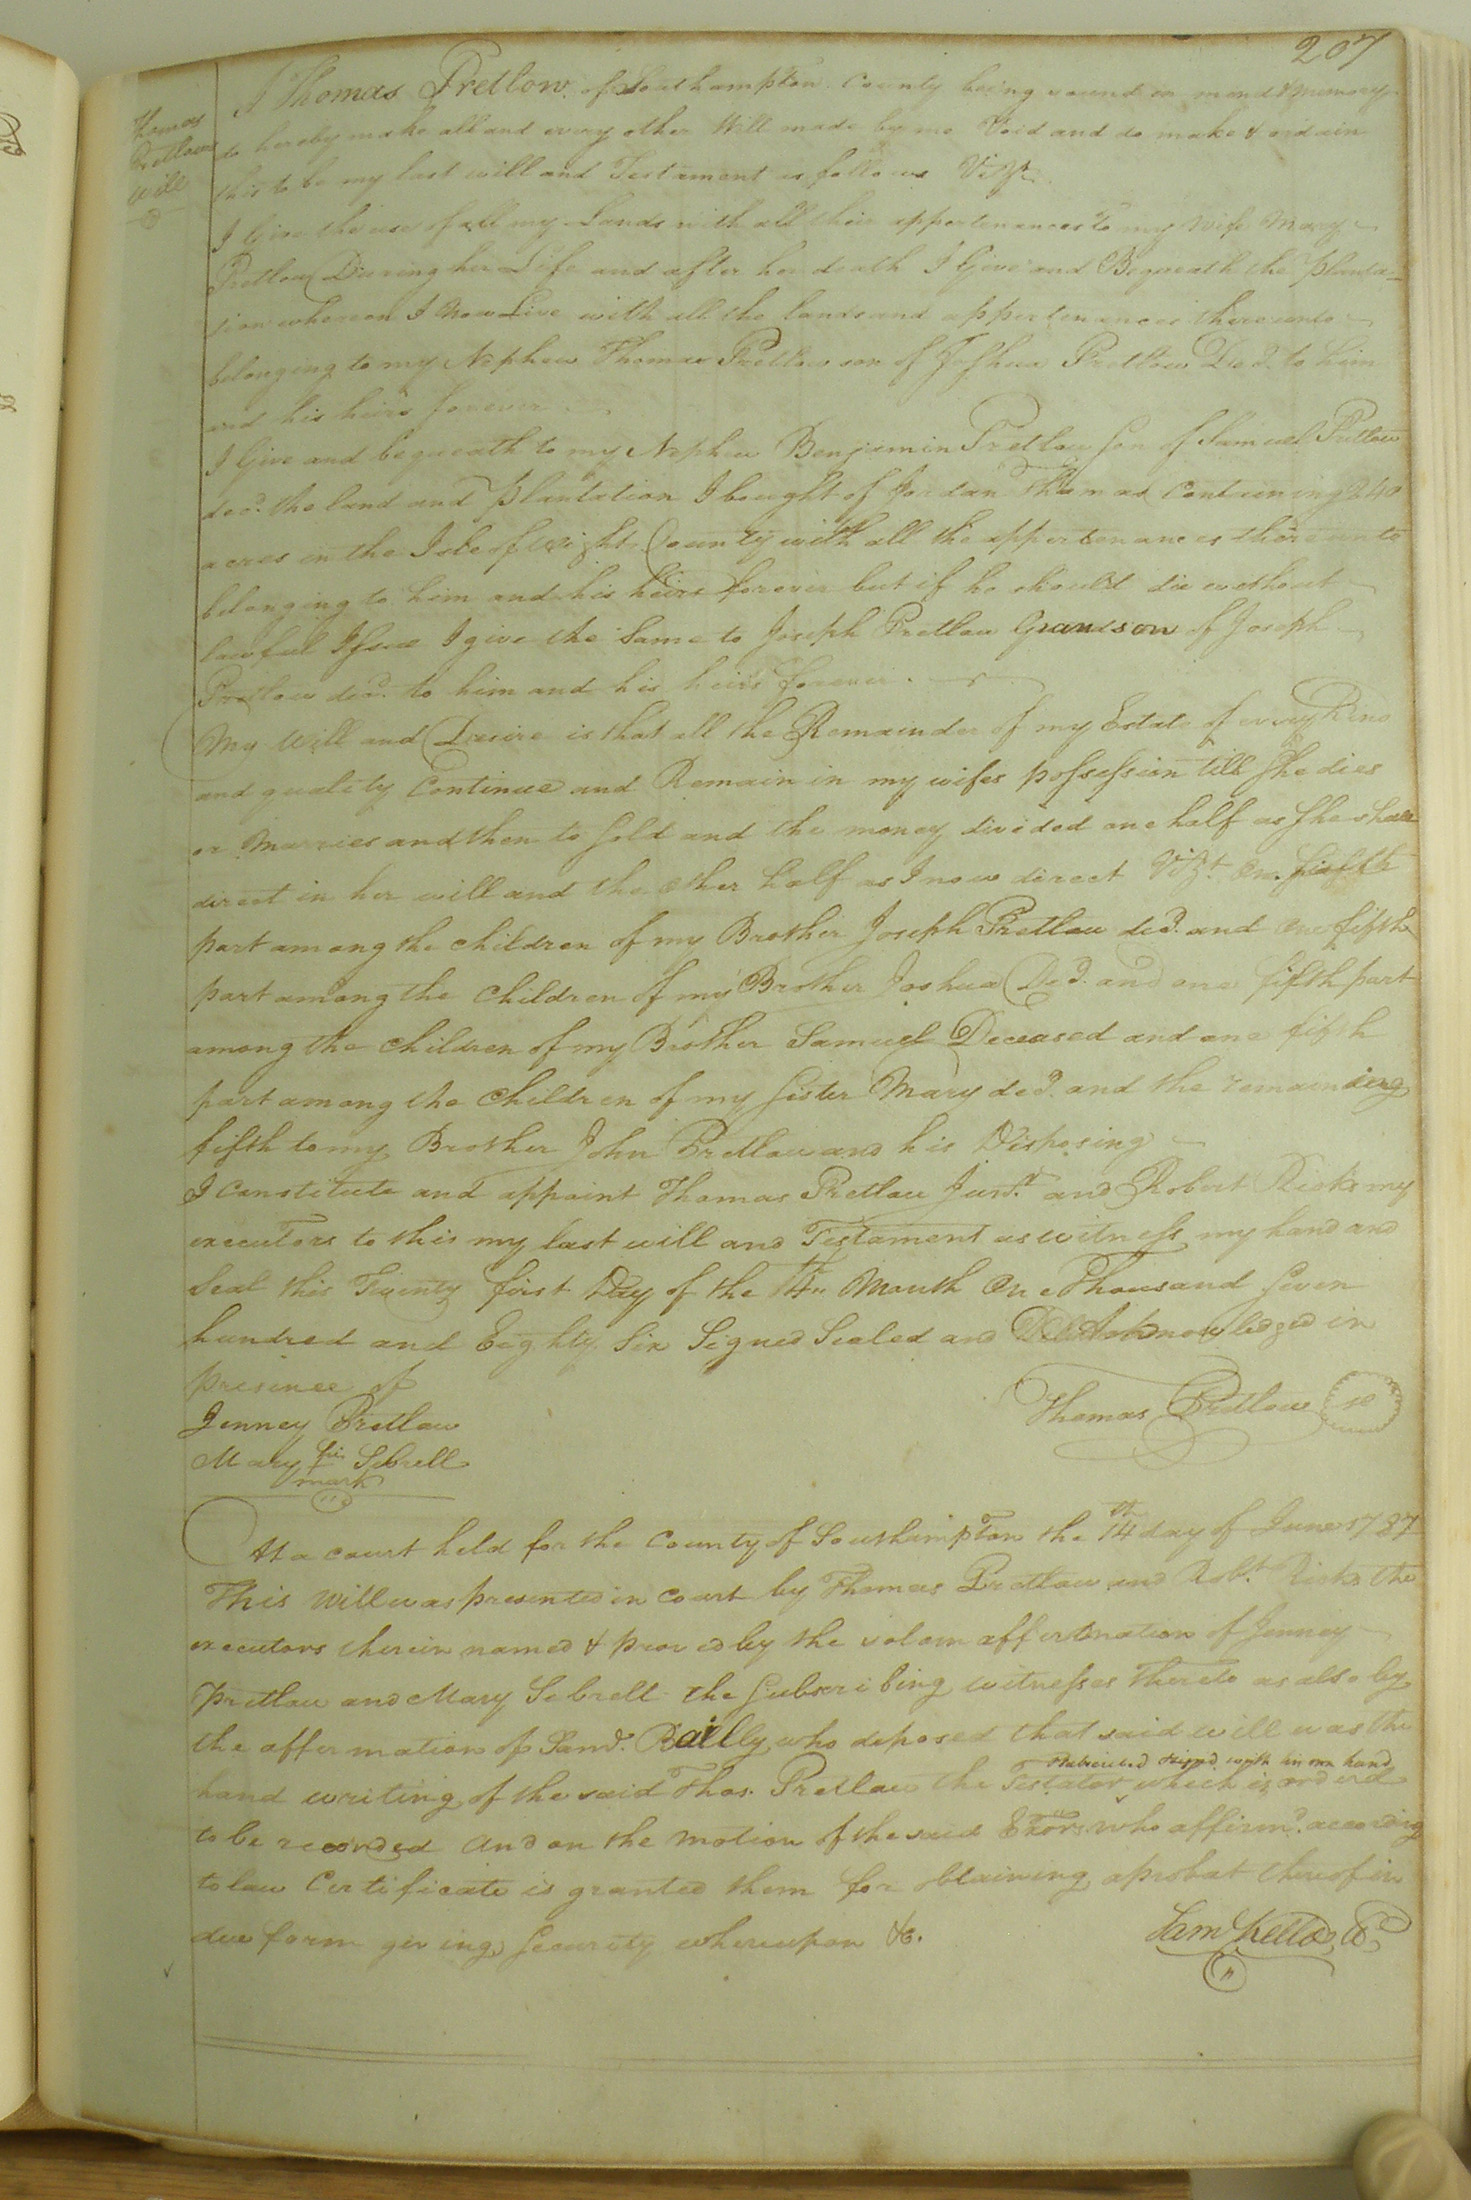 207
Thomas
Pretlows
Will
I Thomas Pretlow of Southampton County being sound in mind & memory
do hereby make all and every other Will made by me Void and do make & ordain
this to be my last will and Testament as follows Vizt.
I Give the use of all my Lands with all their appertenances to my wife Mary
Pretlow Dureing her Life and after her death I Give and Bequeath the planta-
tion whereon I Now Live with all the lands and appertenances thereunto
belonging to my Nephew Thomas Pretlow son of Joshua Pretlow Decd. to him
and his heirs forever
I Give and bequeath to my Nephew Benjamin Pretlow Son of Samuel Pretlow
decd. the land and plantation I bought of Jordan Thomas Containing 240
acres in the Isle of Wight County with all the appertenances thereunto
belonging to him and his heirs forever but if he should die without
lawful Issue I give the Same to Joseph Pretlow Grandson of Joseph
Pretlow decd. to him and his heirs forever.
My Will and Desire is that all the Remainder of my Estate of every Kind
and quality Continue and Remain in my wifes possession till She dies
or Marries and then to Sold and the money divided one half as She shall
direct in her will and the other half as I now direct Vizt. One fifth
part among the children of my Brother Joseph Pretlow decd. and one fifth
part among the children of my Brother Joshua Decd. and one fifth part
among the children of my Brother Samuel Deceased and one fifth
part among the children of my Sister Mary decd. and the remainding
fifth to my Brother John Pretlow and his Disposing
I Constitute and appoint Thomas Pretlow Junr. and Robert Ricks my
executors to this my last will and Testament as witness my hand and
Seal this Twenty first Day of the 4th Month One Thousand Seven
hundred and Eighty Six Signed Sealed and Acknowledged in
presence of
Jenney Pretlow
Thomas Pretlow
Mary her Sebrell
mark
At a court held for the County of Southampton the 14th day of June 1787
This Will was presented in Court by Thomas Pretlow and Robt. Ricks the
executors therein named & proved by the solem affirmation of Jenney
Pretlow and Mary Sebrell the Subscribing witnesses thereto as also by
the affirmation of Saml. Bailly who deposed that said will was the
Subscribed & signd. with his own hand
hand writing of the said Thos. Pretlow the Testator which is orderd
to be recorded And on the motion of the said Exors. who affirmd. according
to law Certificate is granted them for obtaining a probat thereof in
due form giving Security whereupon &c.
Sam Kello C